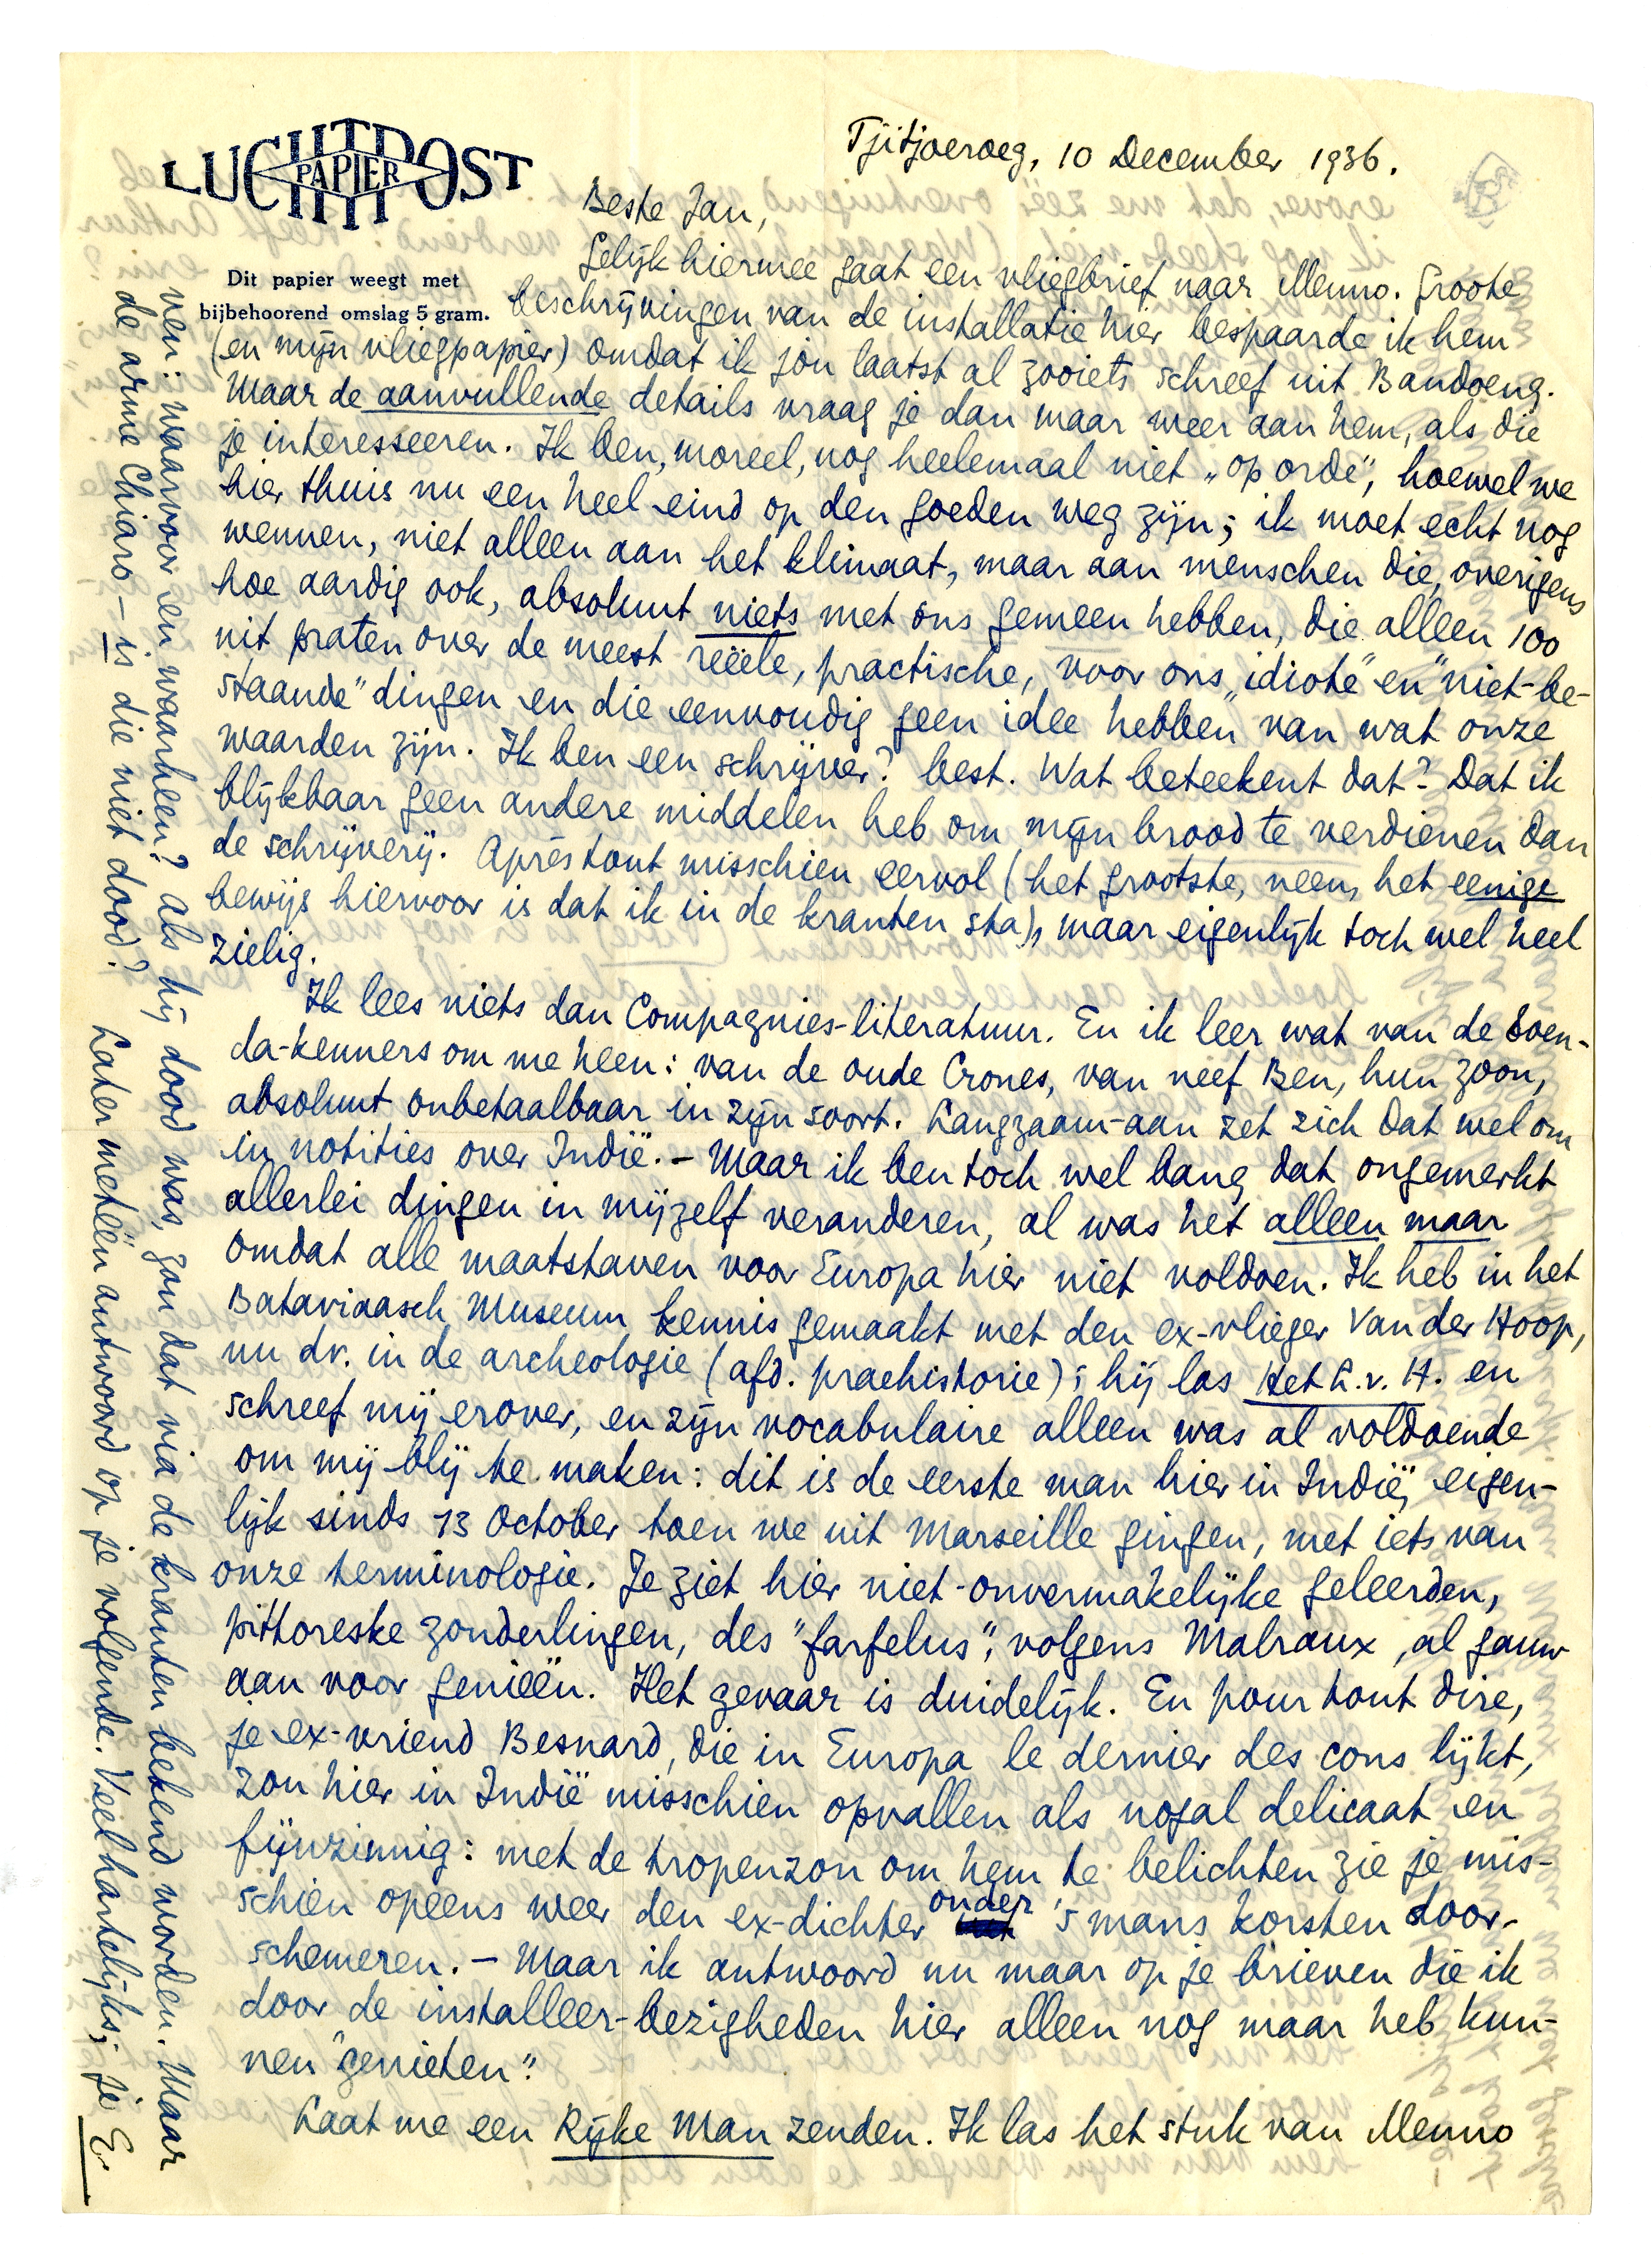 LUCHTPOST
PAPIER
Dit papier weegt met
bijbehoorend omslag 5 gram.
Tjitjoeroeg, 10 December 1936.
Beste Jan,
Gelijk hiermee gaat een vliegbrief naar Menno. Groote
beschrijvingen van de installatie hier bespaarde ik hem
(en mijn vliegpapier) omdat ik jou laatst al zooiets schreef uit Bandoeng.
Maar de aanvullende details vraag je dan maar weer aan hem, als die
je interesseeren. Ik ben, moreel, nog heelemaal niet „op orde", hoewel we
hier thuis nu een heel eind op den goeden weg zijn; ik moet echt nog
wennen, niet alleen aan het klimaat, maar aan menschen die, overigens
hoe aardig ook, absoluut niets met ons gemeen hebben, die alleen 100
uit praten over de meest reëele, practische, voor ons „idiote" en "niet-be-
staande" dingen en die eenvoudig geen idee hebben van wat onze
waarden zijn. Ik ben een schrijver? best. Wat beteekent dat? Dat ik
blijkbaar geen andere middelen heb om mijn brood te verdienen dan
de schrijverij. Après tout misschien eervol (het grootste, neen, het eenige
bewijs hiervoor is dat ik in de kranten sta), maar eigenlijk toch wel heel
zielig.
Ik lees niets dan Compagnies-literatuur. En ik leer wat van de Soen-
da-kenners om me heen: van de oude Crones, van neef Ben, hun zoon,
absoluut onbetaalbaar in zijn soort. Langzaam-aan zet zich dat wel om
in notities over Indië. – Maar ik ben toch wel bang dat ongemerkt
allerlei dingen in mijzelf veranderen, al was het alleen maar
omdat alle maatstaven voor Europa hier niet voldoen. Ik heb in het
Bataviaasch Museum kennis gemaakt met den ex-vlieger Van der Hoop,
nu dr. in de archeologie (afd. praehistorie); hij las Het L.v.H. en
schreef mij erover, en zijn vocabulaire alleen was al voldoende
om mij blij te maken: dit is de eerste man hier in Indië, eigen-
lijk sinds 13 October toen we uit Marseille gingen, met iets van
onze terminologie. Je ziet hier niet-onvermakelijke geleerden,
pittoreske zonderlingen, des "farfelus", volgens Malraux, al gauw
aan voor genieën. Het gevaar is duidelijk. En pour tout dire,
je ex-vriend Besnard, die in Europa le dernier des cons lijkt,
zou hier in Indië misschien opvallen als nogal delicaat en
fijnzinnig: met de tropenzon om hem te belichten zie je mis-
schien opeens weer den ex-dichter onder 's mans korsten door-
schemeren. – Maar ik antwoord nu maar op je brieven die ik
door de installeer-bezigheden hier alleen nog maar heb kun-
nen "genieten".
Laat me een Rijke Man zenden. Ik las het stuk van Menno
ven: waarvoor en waarheen? Als hij dood was, zou dat via de kranten bekend worden. Maar
de arme Chiaro – is die niet dood? Later meteen antwoord op je volgende. Veel hartelijks; je E.